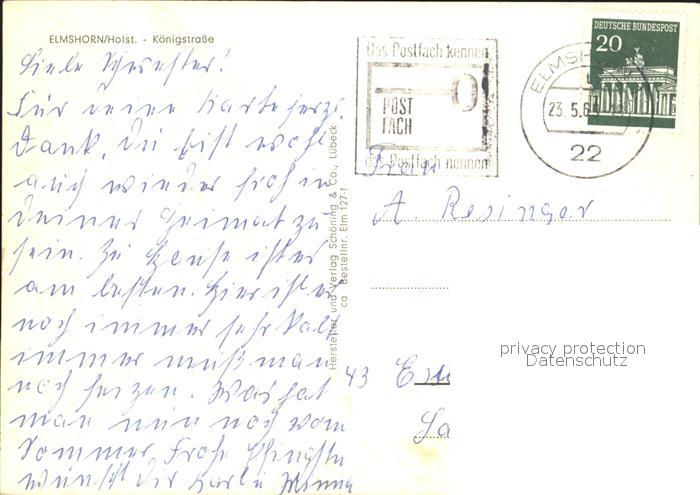 ELMSHORN/Holst. - Königstraße
Liebe Schwester!
Für deine Karte herzl.
Dank. Du bist wohl
auch wieder froh in
deiner Heimat zu
sein. Zu Hause ist es
am besten. Hier ist es
noch immer sehr kalt
immer muß man
noch heizen. Was hat
man nun noch vom
Sommer Frohe Pfingsten
wünscht dir Karla Minna
Hersteller und Verlag Schöning & Co., Lübeck
Bestellnr. Elm 127-f
Das Postfach kennen
POST
FACH
das Postfach nennen
ELMSH
23.5.6
22
DEUTSCHE BUNDESPOST
20
Frau
A. Resinger
43
privacy protection
Datenschutz